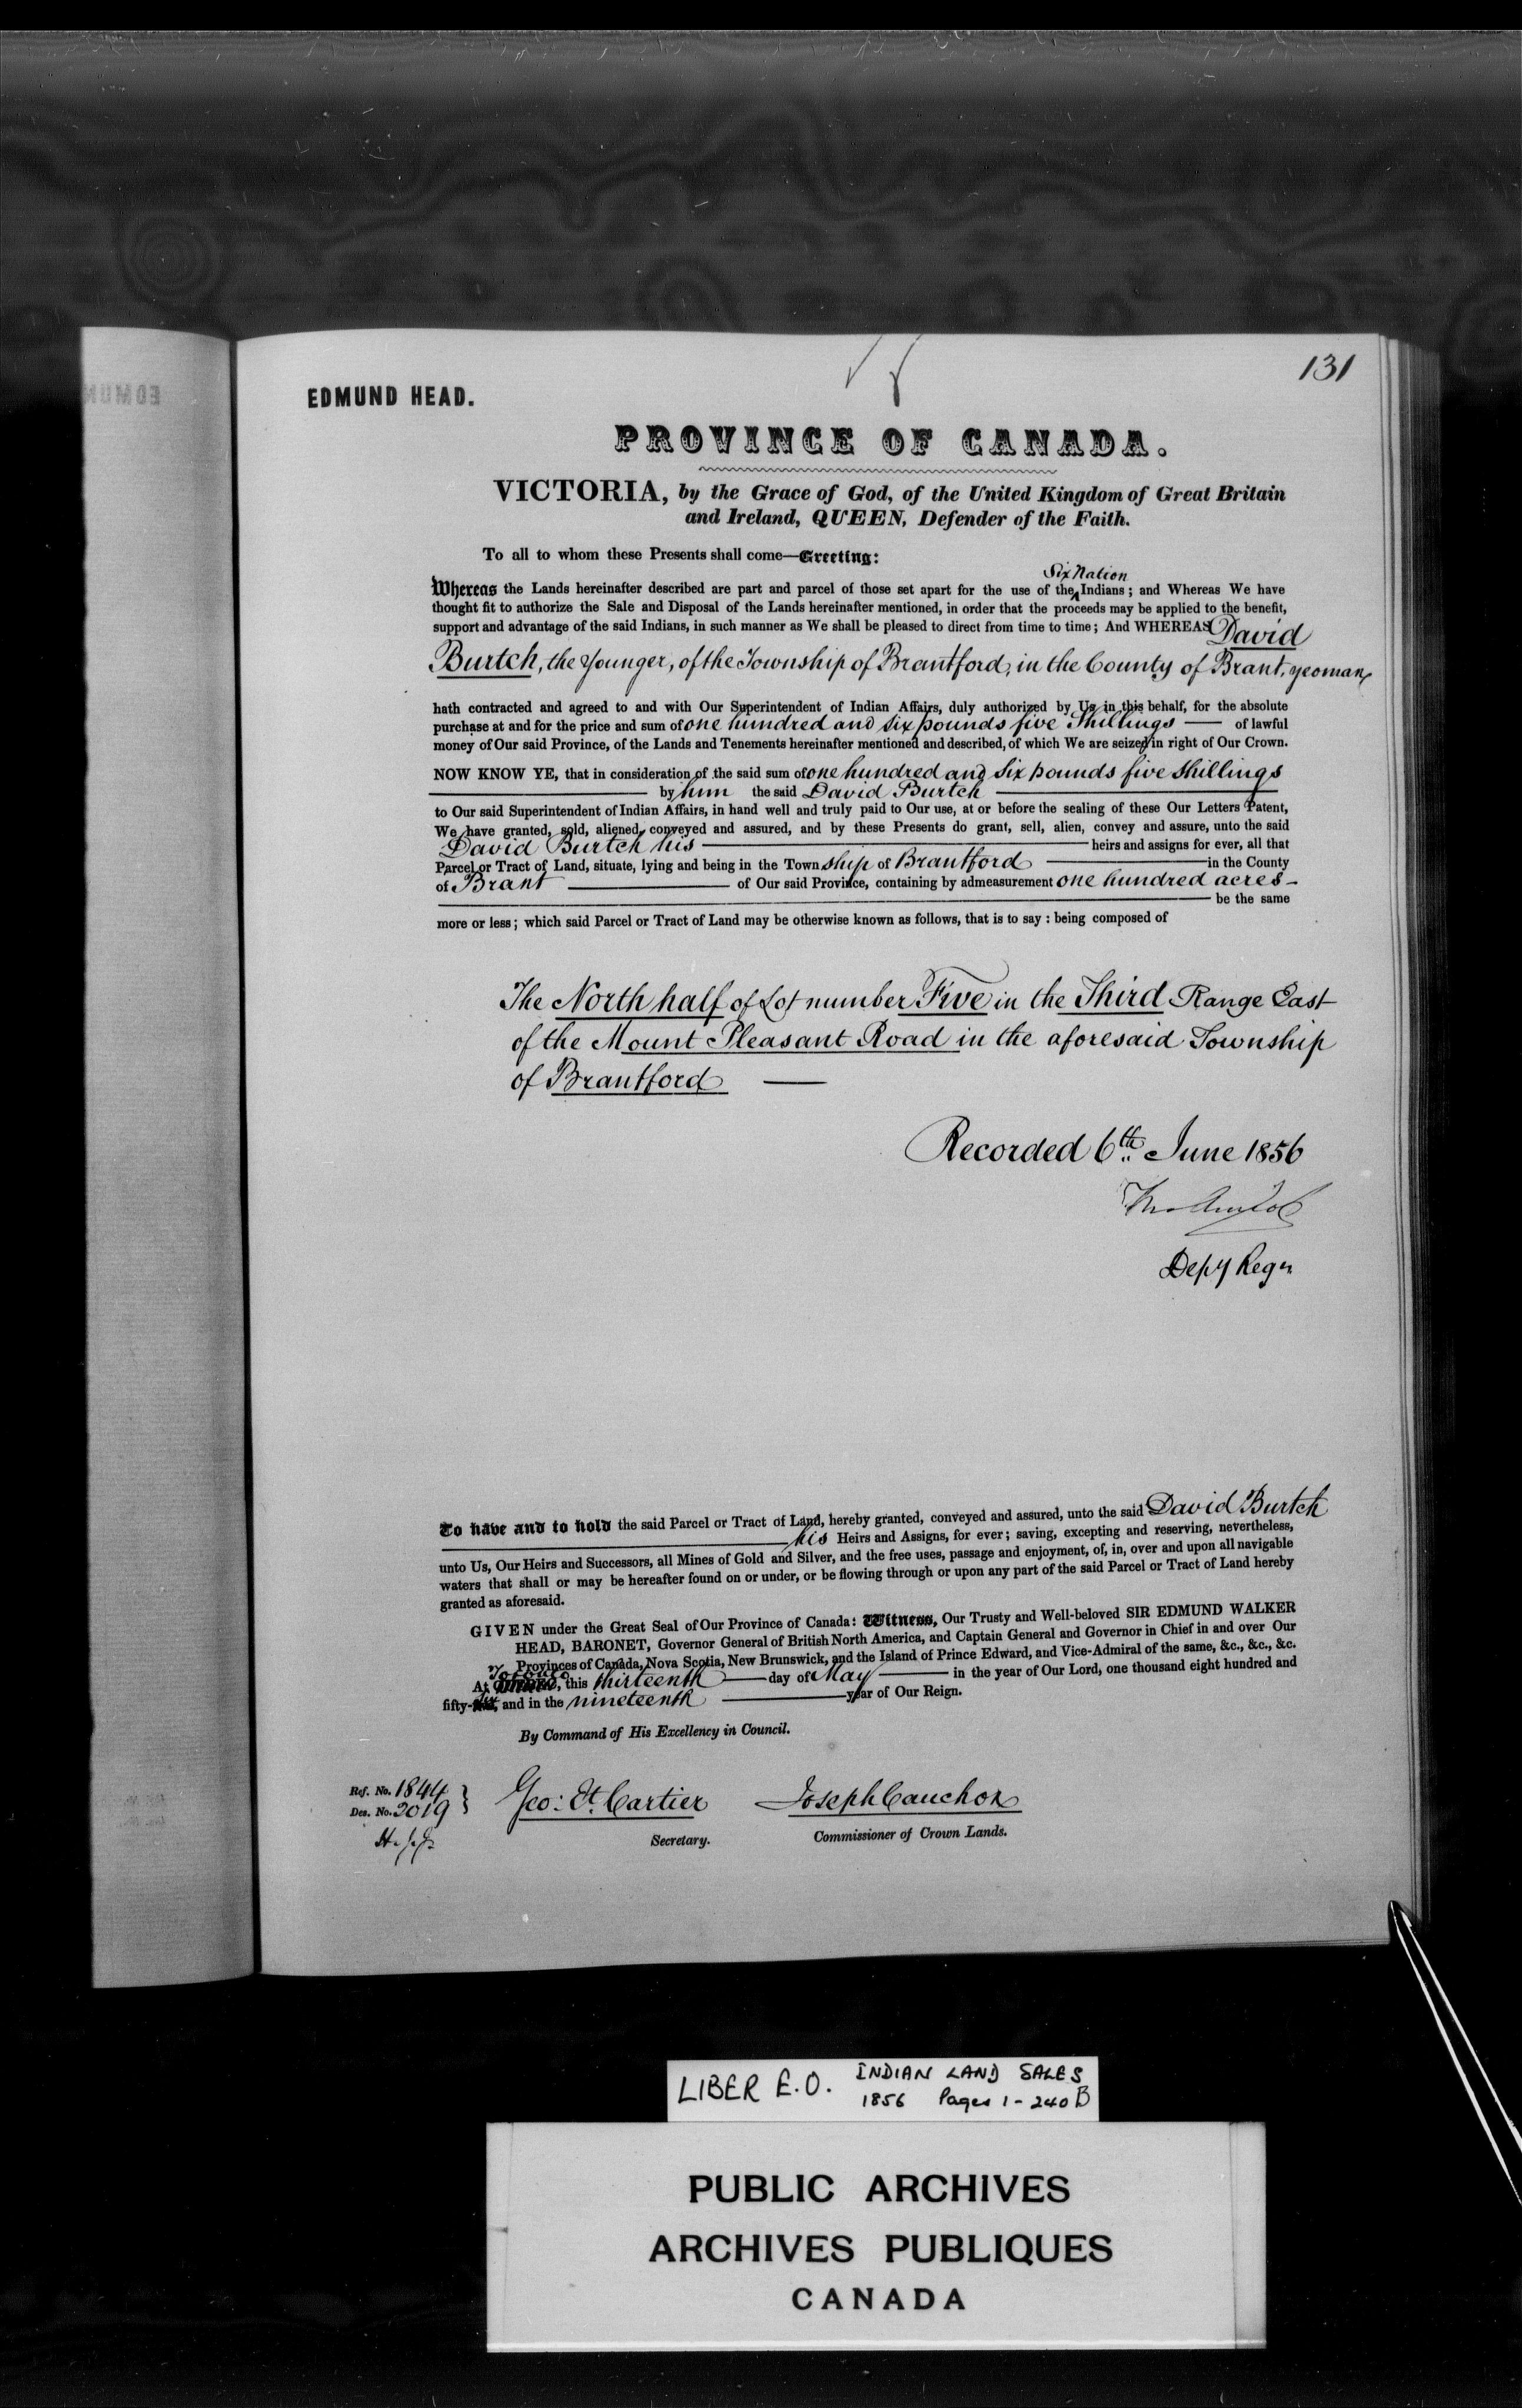 131
EDMUND HEAD.
PROVINCE OF CANADA.
VICTORIA, by the Grace of God, of the United Kingdom of Great Britain
and Ireland, QUEEN, Defender of the Faith.
To all to whom these Presents shall come—Greeting:
Six Nation
Whereas the Lands hereinafter described are part and parcel of those set apart for the use of the ^ Indians; and Whereas We have
thought fit to authorize the Sale and Disposal of the Lands hereinafter mentioned, in order that the proceeds may be applied to the benefit,
support and advantage of the said Indians, in such manner as We shall be pleased to direct from time to time; And WHEREAS David
Burtch, the Younger, of the Township of Brantford, in the County of Brant, yeoman,
hath contracted and agreed to and with Our Superintendent of Indian Affairs, duly authorized by Us in this behalf, for the absolute
purchase at and for the price and sum of one hundred and six pounds five Shillings — of lawful
money of Our said Province, of the Lands and Tenements hereinafter mentioned and described, of which We are seized in right of Our Crown.
NOW KNOW YE, that in consideration of the said sum of one hundred and six pounds five shillings
by him the said David Burtch
to Our said Superintendent of Indian Affairs, in hand well and truly paid to Our use, at or before the sealing of these Our Letters Patent,
We have granted, sold, aliened, conveyed and assured, and by these Presents do grant, sell, alien, convey and assure, unto the said
David Burtch his heirs and assigns for ever, all that
Parcel or Tract of Land, situate, lying and being in the Township of Brantford in the County
of Brant of Our said Province, containing by admeasurement one hundred acres
be the same
more or less; which said Parcel or Tract of Land may be otherwise known as follows, that is to say: being composed of
The North half of Lot number Five in the Third Range East
of the Mount Pleasant Road in the aforesaid Township
of Brantford —
Recorded 6th June 1856
Depy Regr
To have and to hold the said Parcel or Tract of Land, hereby granted, conveyed and assured, unto the said David Burtch
his Heirs and Assigns, for ever; saving, excepting and reserving, nevertheless,
unto Us, Our Heirs and Successors, all Mines of Gold and Silver, and the free uses, passage and enjoyment, of, in, over and upon all navigable
waters that shall or may be hereafter found on or under, or be flowing through or upon any part of the said Parcel or Tract of Land hereby
granted as aforesaid.
GIVEN under the Great Seal of Our Province of Canada: Witness, Our Trusty and Well-beloved SIR EDMUND WALKER
HEAD, BARONET, Governor General of British North America, and Captain General and Governor in Chief in and over Our
Provinces of Canada, Nova Scotia, New Brunswick, and the Island of Prince Edward, and Vice-Admiral of the same, &c., &c., &c.
At Toronto, this thirteenth day of May in the year of Our Lord, one thousand eight hundred and
fifty-six, and in the nineteenth year of Our Reign.
By Command of His Excellency in Council.
Ref. No. 1844
Des. No. 2019
Geo: Et. Cartier Joseph Cauchon
Secretary. Commissioner of Crown Lands.
LIBER E.O. INDIAN LAND SALES
1856 Pages 1-240B
PUBLIC ARCHIVES
ARCHIVES PUBLIQUES
CANADA